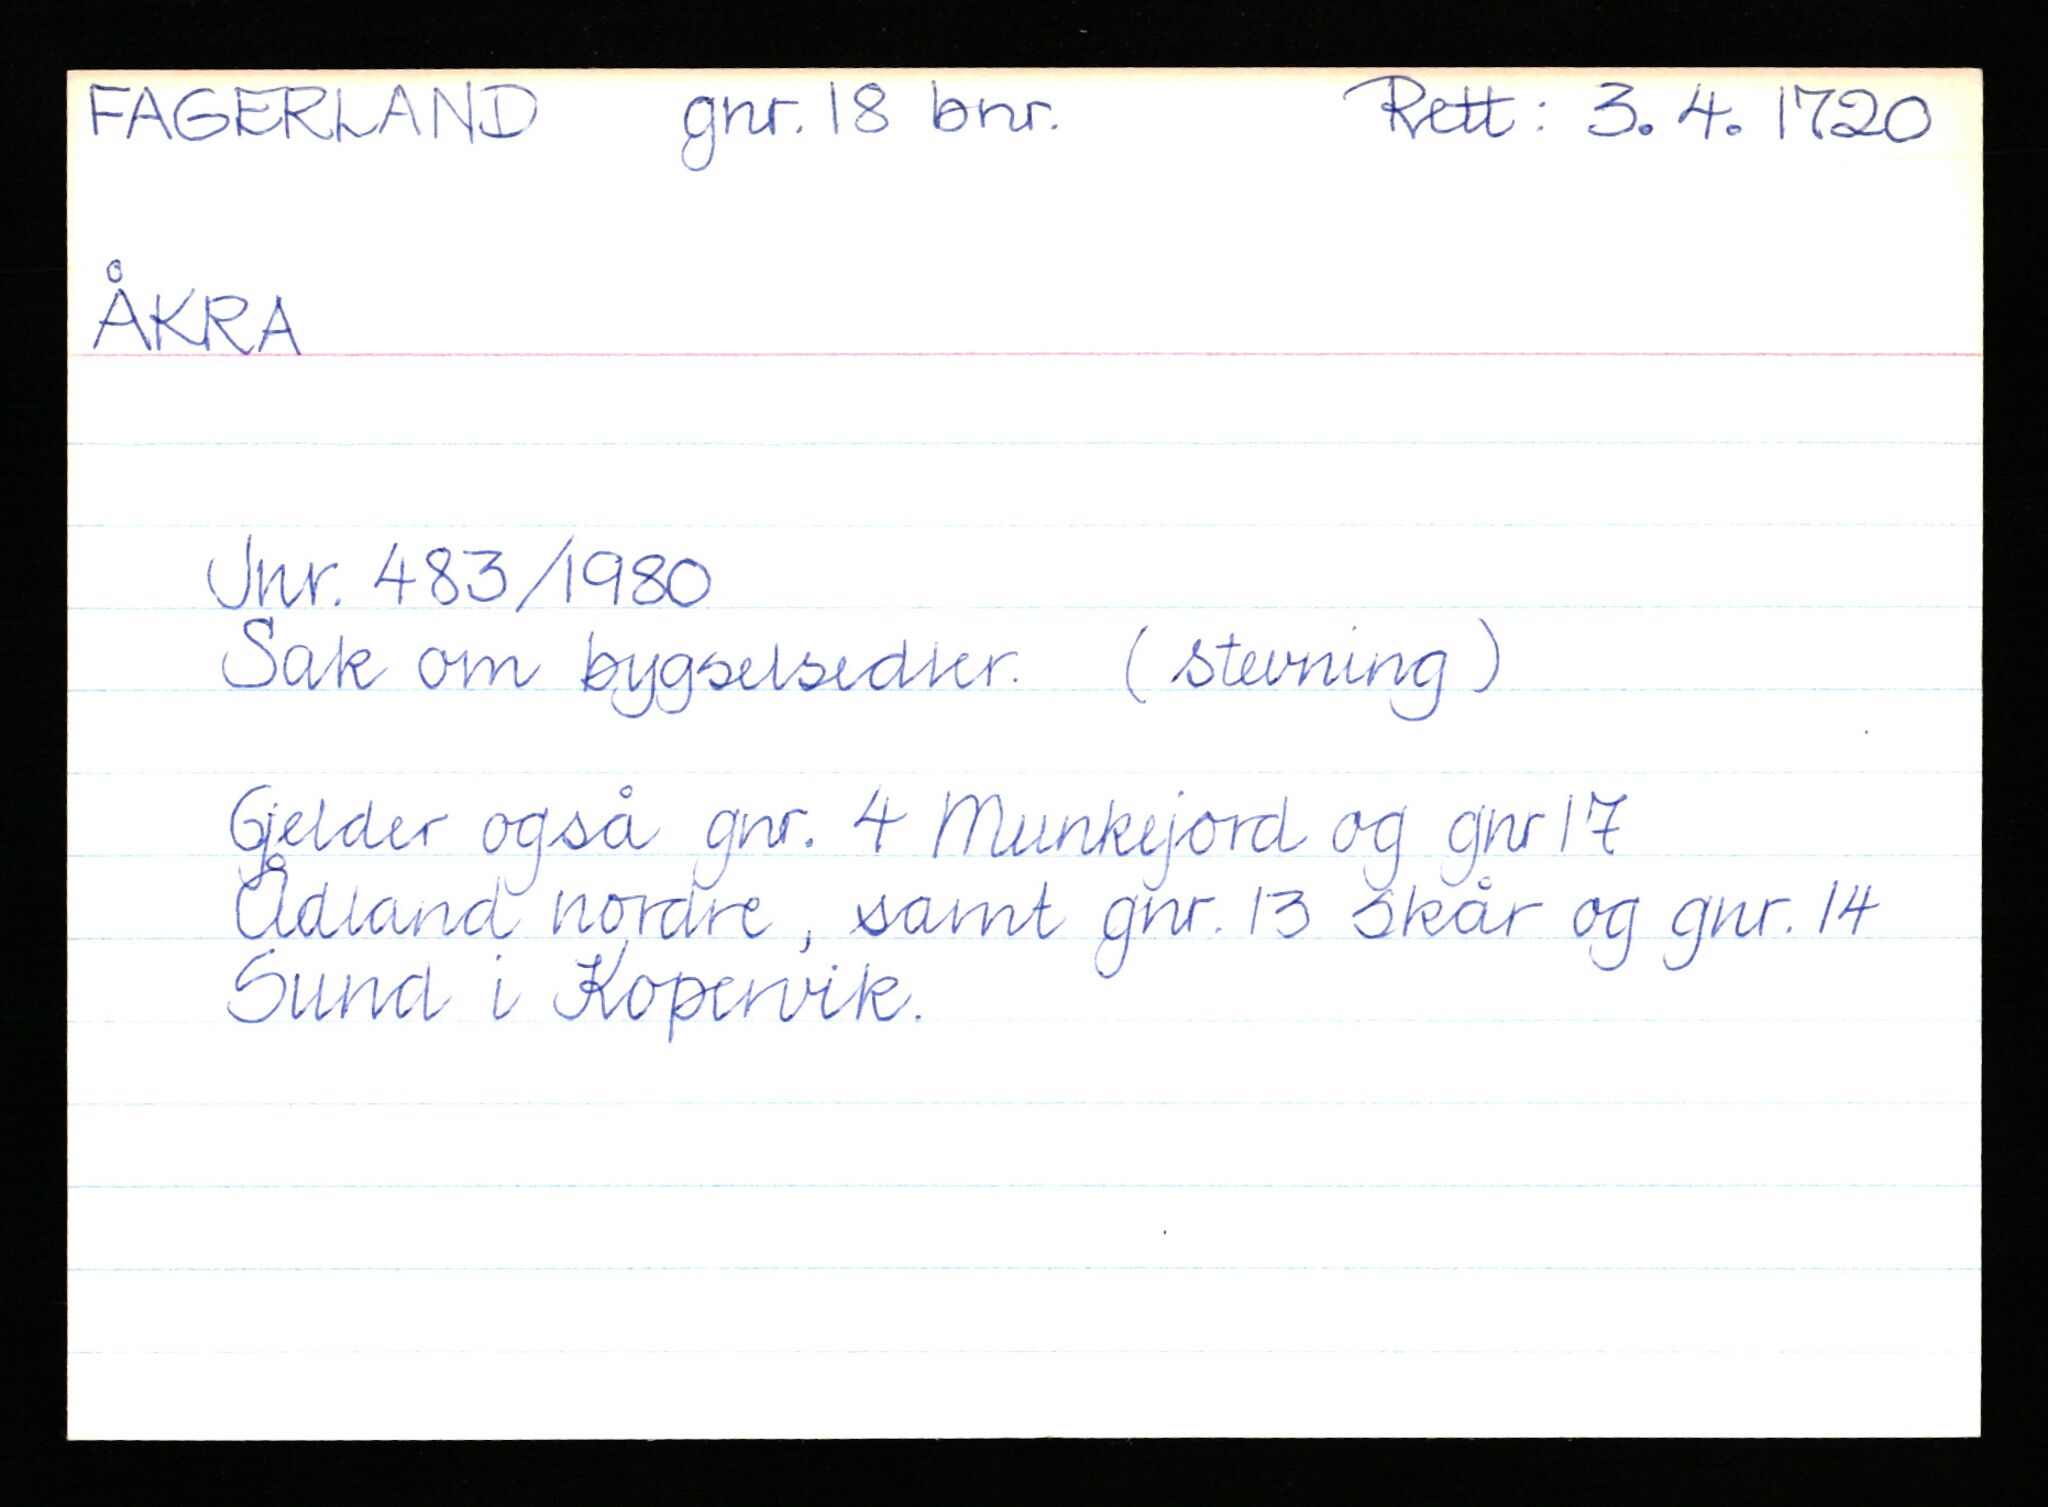 FAGERLAND gnr. 18 bnr. Rett: 3. 4. 1720
ÅKRA
Jnr. 483/1980
Sak om bygselsedler. (stevning)
Gjelder også gnr. 4 Munkejord og gnr 17
Ådland nordre, samt gnr. 13 Skår og gnr. 14
Sund i Kopervik.